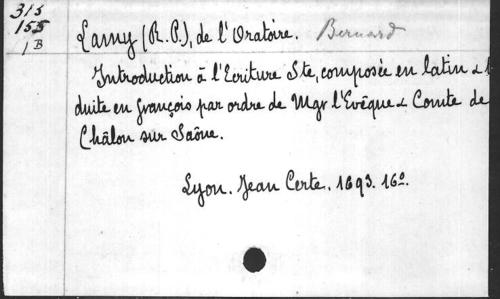 315
155
1 B
Lamy (R. P.), de l'Oratoire. Bernard
Introduction à l'Ecriture Ste, composée en latin &
duite en françois par ordre de Mgr l'Evêque & Comte de
Châlon sur Saône.
Lyon. Jean Certe. 1693. 16º.